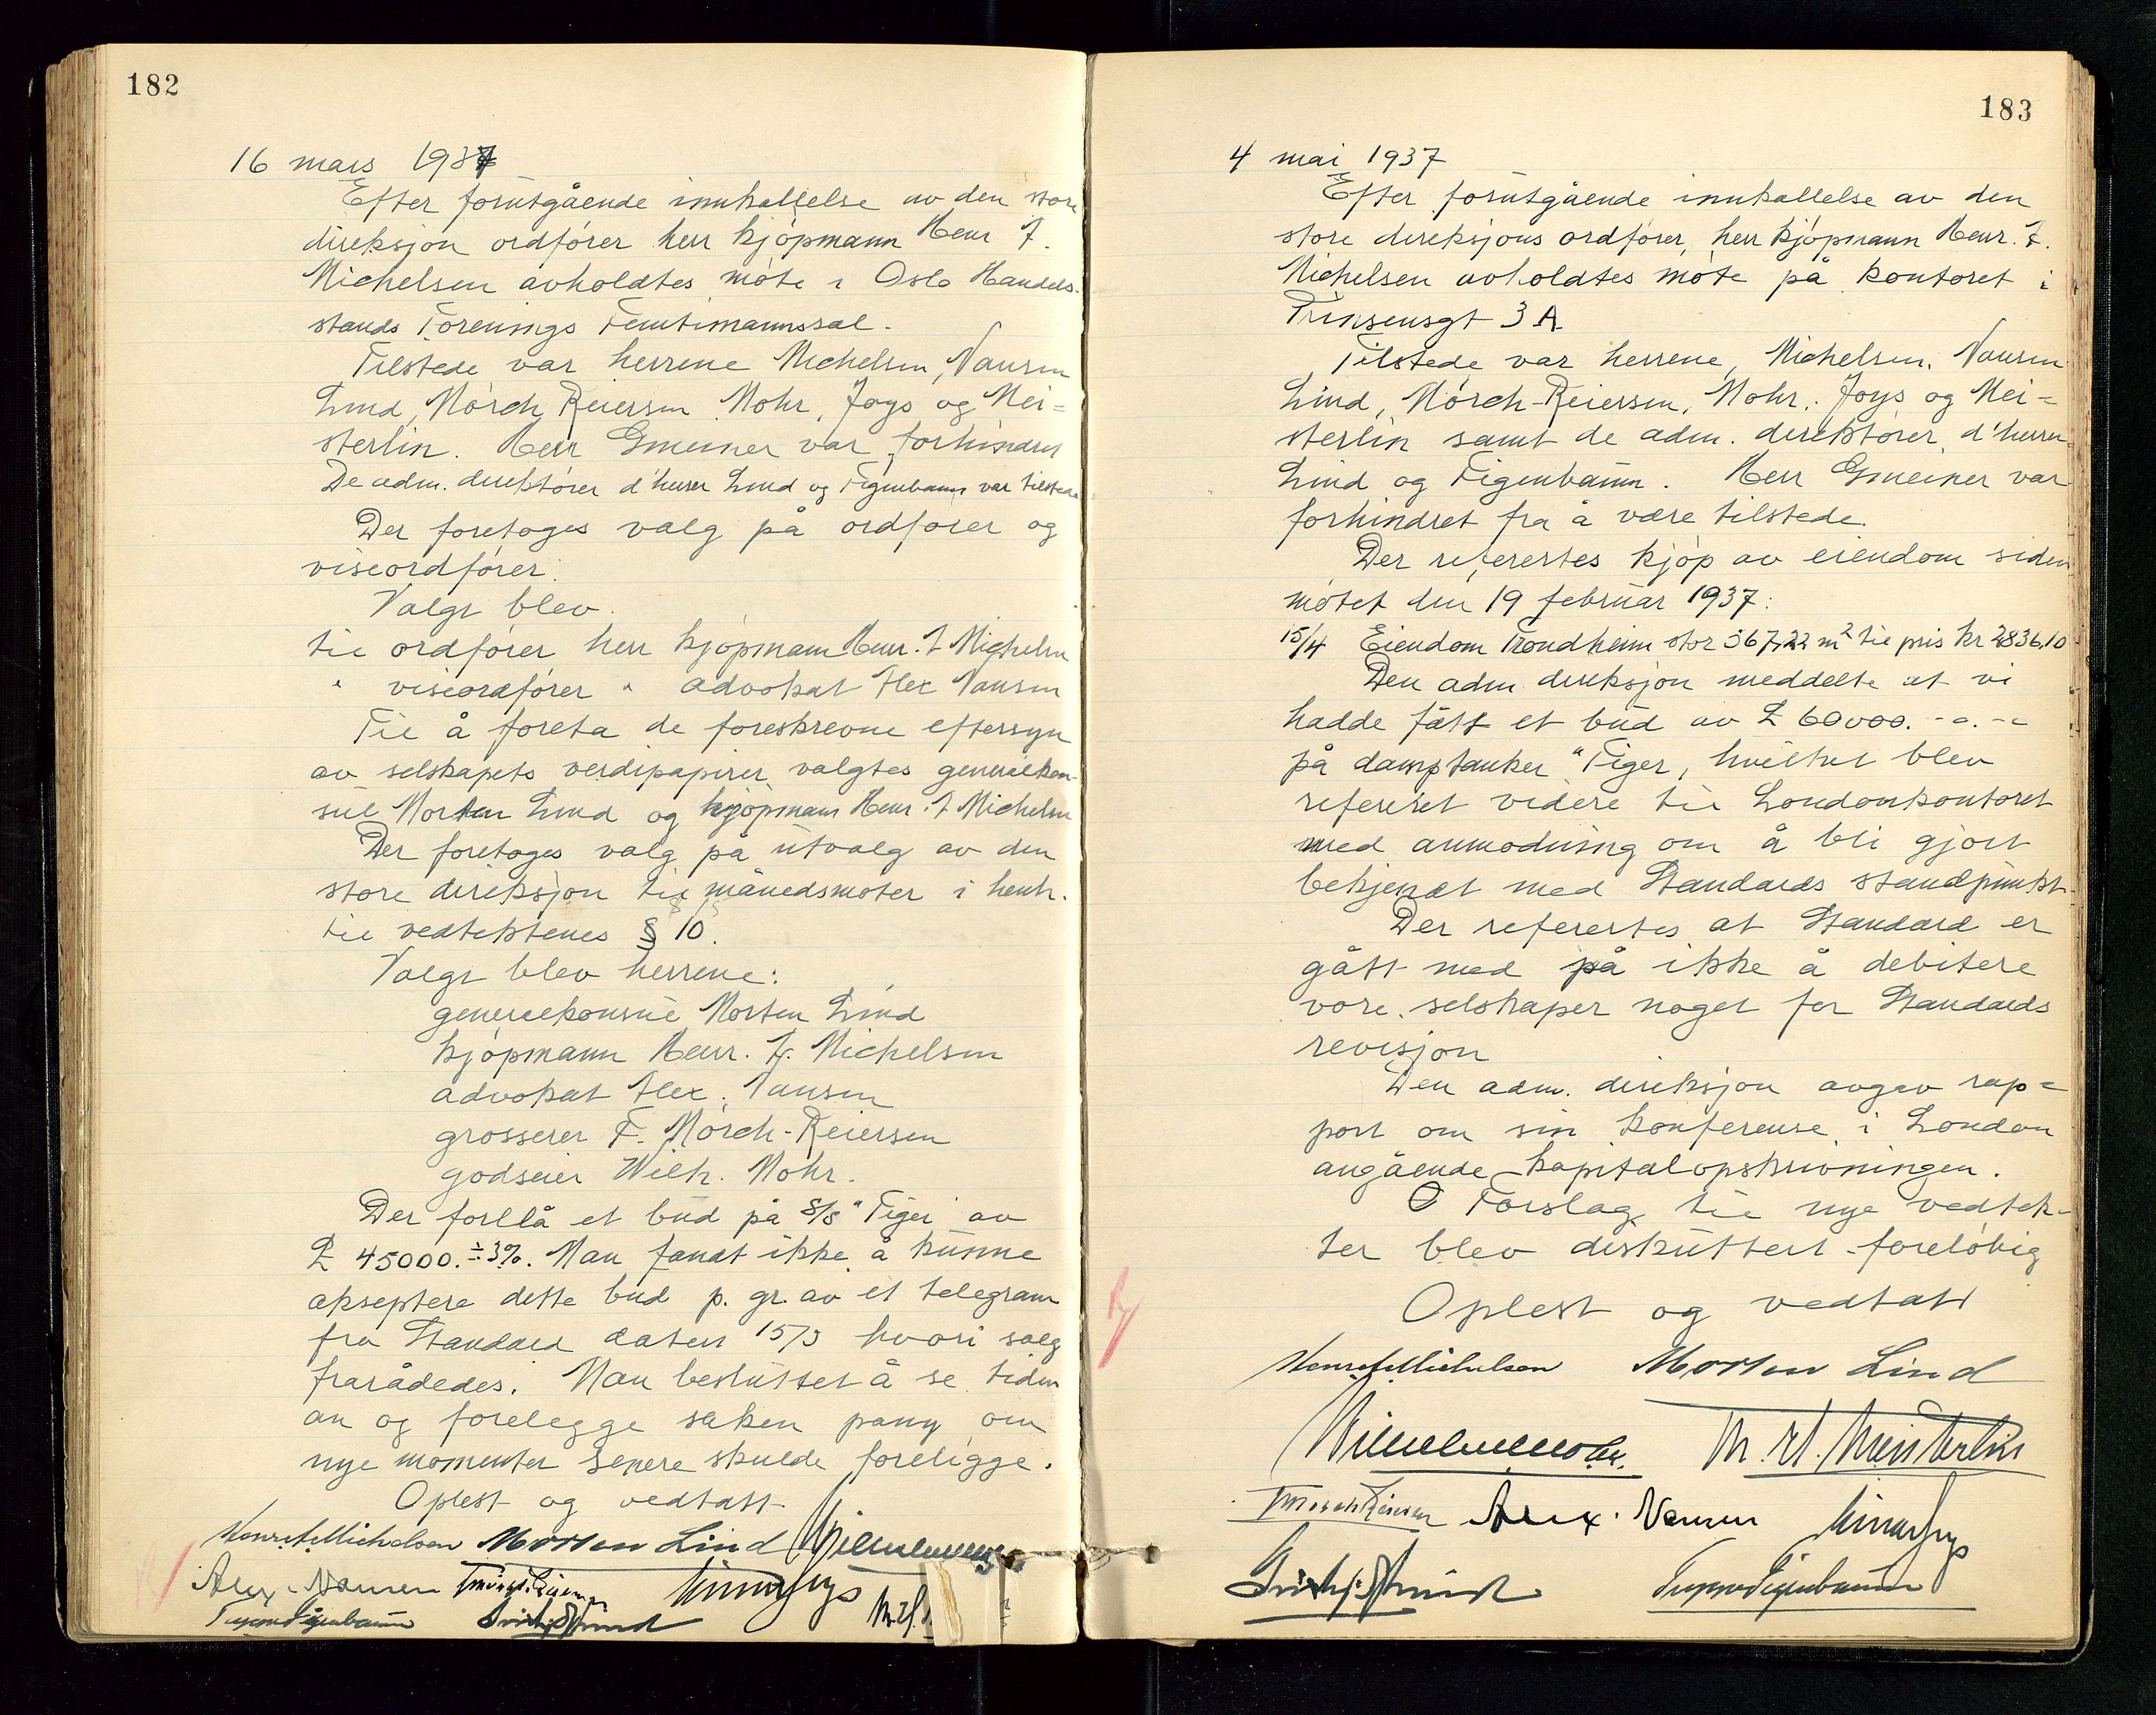 182
16 mars 1937
Efter forutgående innkallelse av den store
direksjon ordfører herr kjøpmann Henr. F.
Michelsen avholdtes møte i Oslo Handels-
stands Forenings Femtimannssal.
Tilstede var herrene Michelsen, Nansen
Lind, Mørch Reiersen, Mohr, Joys og Mei=
sterlin. Herr Gmeiner var forhindret
De adm. direktører d'herrer Lind og Figenbaum var tilstede
Der foretoges valg på ordfører og
viseordfører.
Valgt blev
til ordfører herr kjøpmann Henr. F Michelsen
" viseordfører " advokat Alex Nansen
Til å foreta de foreskrevne eftersyn
av selskapets verdipapirer valgtes generalkon-
sul Morten Lind og kjøpmann Henr. F Michelsen
Der foretoges valg på utvalg av den
store direksjon til månedsmøter i henh.
til vedtektenes § 10.
Valgt blev herrene:
generalkonsul Morten Lind
kjøpmann Henr. F. Michelsen
advokat Alex. Nansen
grosserer F. Mørch-Reiersen
godseier Wilh. Mohr.
Der forelå et bud på S/S "Tiger" av
£ 45000. ÷ 3%. Man fandt ikke å kunne
akseptere dette bud p. gr. av et telegram
fra Standard datert 15/3 hvori salg
frarådedes. Man besluttet å se tiden
an og forelegge saken påny om
nye momenter senere skulde foreligge.
Oplest og vedtatt
Henr. F. Michelsen Morten Lind Wilhelm Mohr
Alex. Nansen F Mørch Reiersen Joys M. H.
Figenbaum Lind
183
4 mai 1937
Efter forutgående innkallelse av den
store direksjons ordfører, herr kjøpmann Henr. F.
Michelsen avholdtes møte på kontoret i
Prinsensgt 3 A.
Tilstede var herrene, Michelsen, Nansen
Lind, Mørch-Reiersen, Mohr, Joys og Mei=
sterlin samt de adm. direktører d'herrer
Lind og Figenbaum. Herr Gmeiner var
forhindret fra å være tilstede.
Der referertes kjøp av eiendom siden
møtet den 19 februar 1937:
15/4 Eiendom Trondheim stor 367,22 m² til pris kr 2836,10
Den adm direksjon meddelte at vi
hadde fått et bud av £ 60000.-o.-o
på damptanker "Tiger, hvilket blev
referert videre til Londonkontoret
med anmodning om å bli gjort
bekjendt med Standards standpunkt.
Der referertes at Standard er
gått med på ikke å debitere
vore selskaper noget for Standards
revisjon
Den adm. direksjon avgav rap=
port om sin konferense i London
angående kapitalopskrivningen.
Forslag til nye vedtek-
ter blev diskuttert foreløbig
Oplest og vedtatt
Henr. F. Michelsen Morten Lind
Wilhelm Mohr. M. H. Meisterlin
F Mørch Reiersen Alex. Nansen Joys
Lind Figenbaum